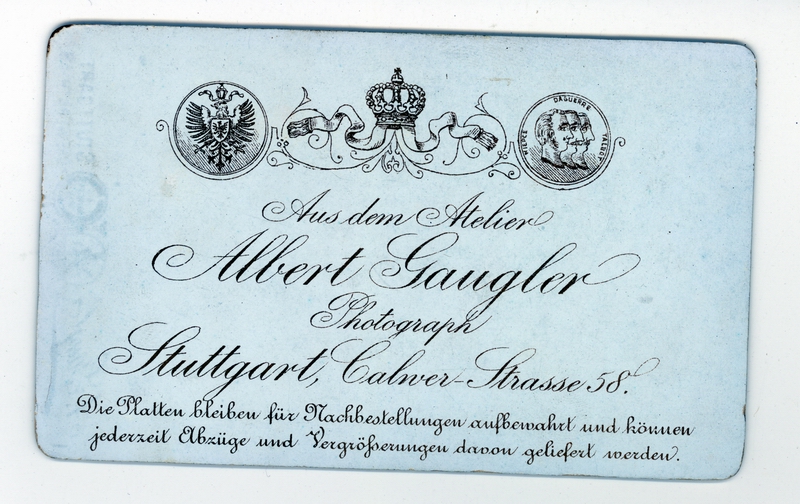 NIEPCE DAGUERRE TALBOT
Aus dem Atelier
Albert Gaugler
Photograph
Stuttgart, Calwer-Strasse 58.
Die Platten bleiben für Nachbestellungen aufbewahrt und können
jederzeit Abzüge und Vergrößserungen davon geliefert werden.